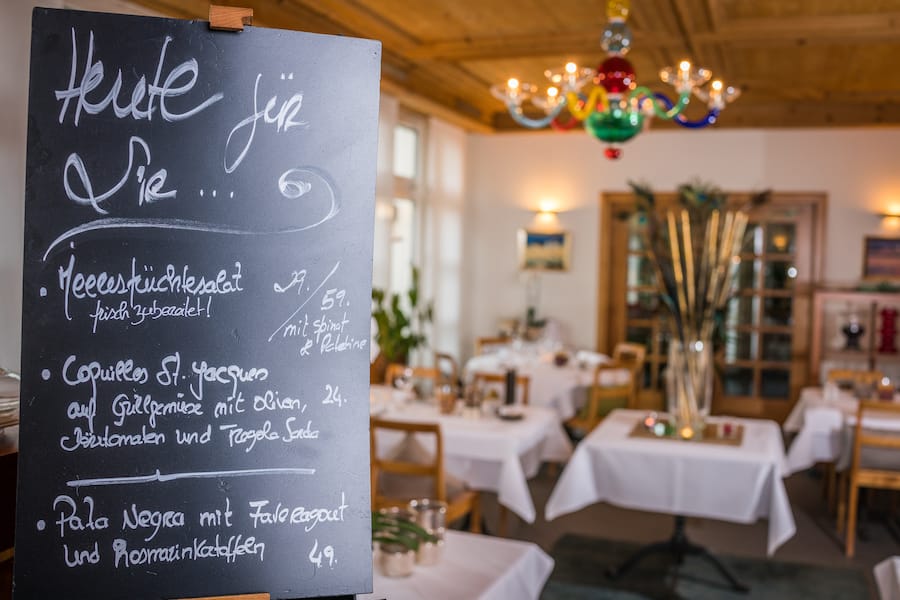 Heute für
Sie ...
• Meeresfrüchtesalat 29. / 59.
frisch zubereitet! mit spinat
&
• Coquilles St. Jacques
auf Grillgemüse mit oliven, 24.
und Fregola Sarda
• Pata Negra mit Faveragout
und Rosmarinkatoffeln 49.